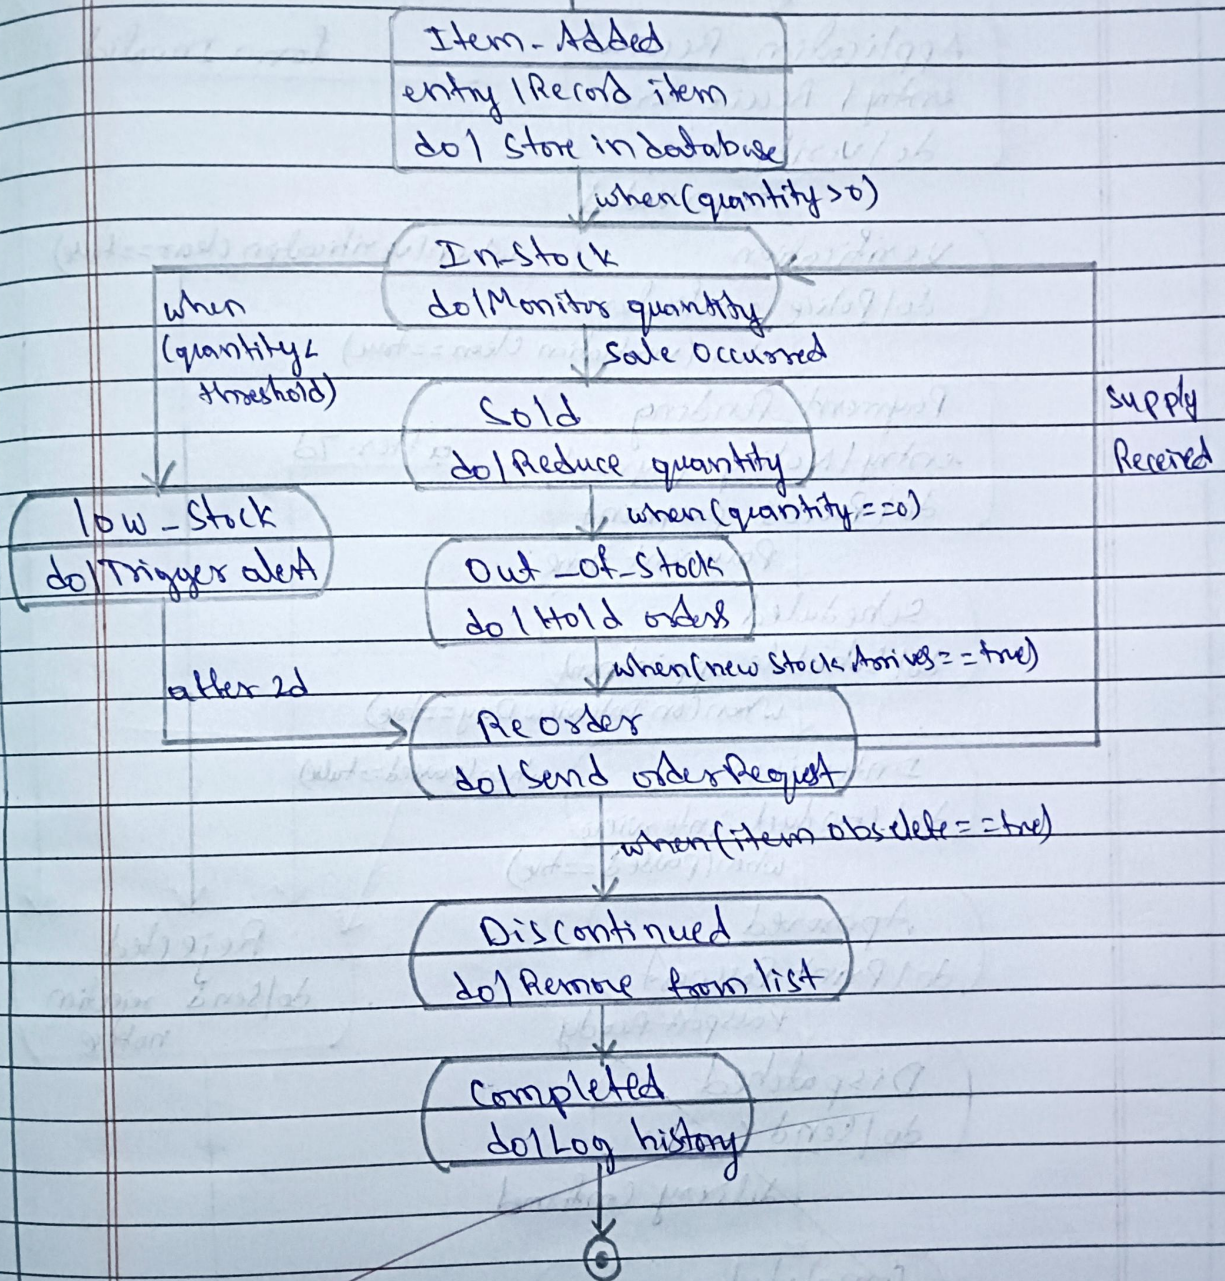 Item-Added
entry / Record item
do / Store in database
when(quantity>0)
In-Stock
do/Monitor quantity
when
(quantity<
threshold)
Sale Occurred
Sold
do/Reduce quantity
Supply
Received
low-Stock
do/Trigger alert
when(quantity==0)
Out-of-Stock
do/Hold orders
after 2d
when(new Stock Arrives==true)
Reorder
do/Send orderRequest
when(item obselete==true)
Discontinued
do/Remove from list
Completed
do/Log history